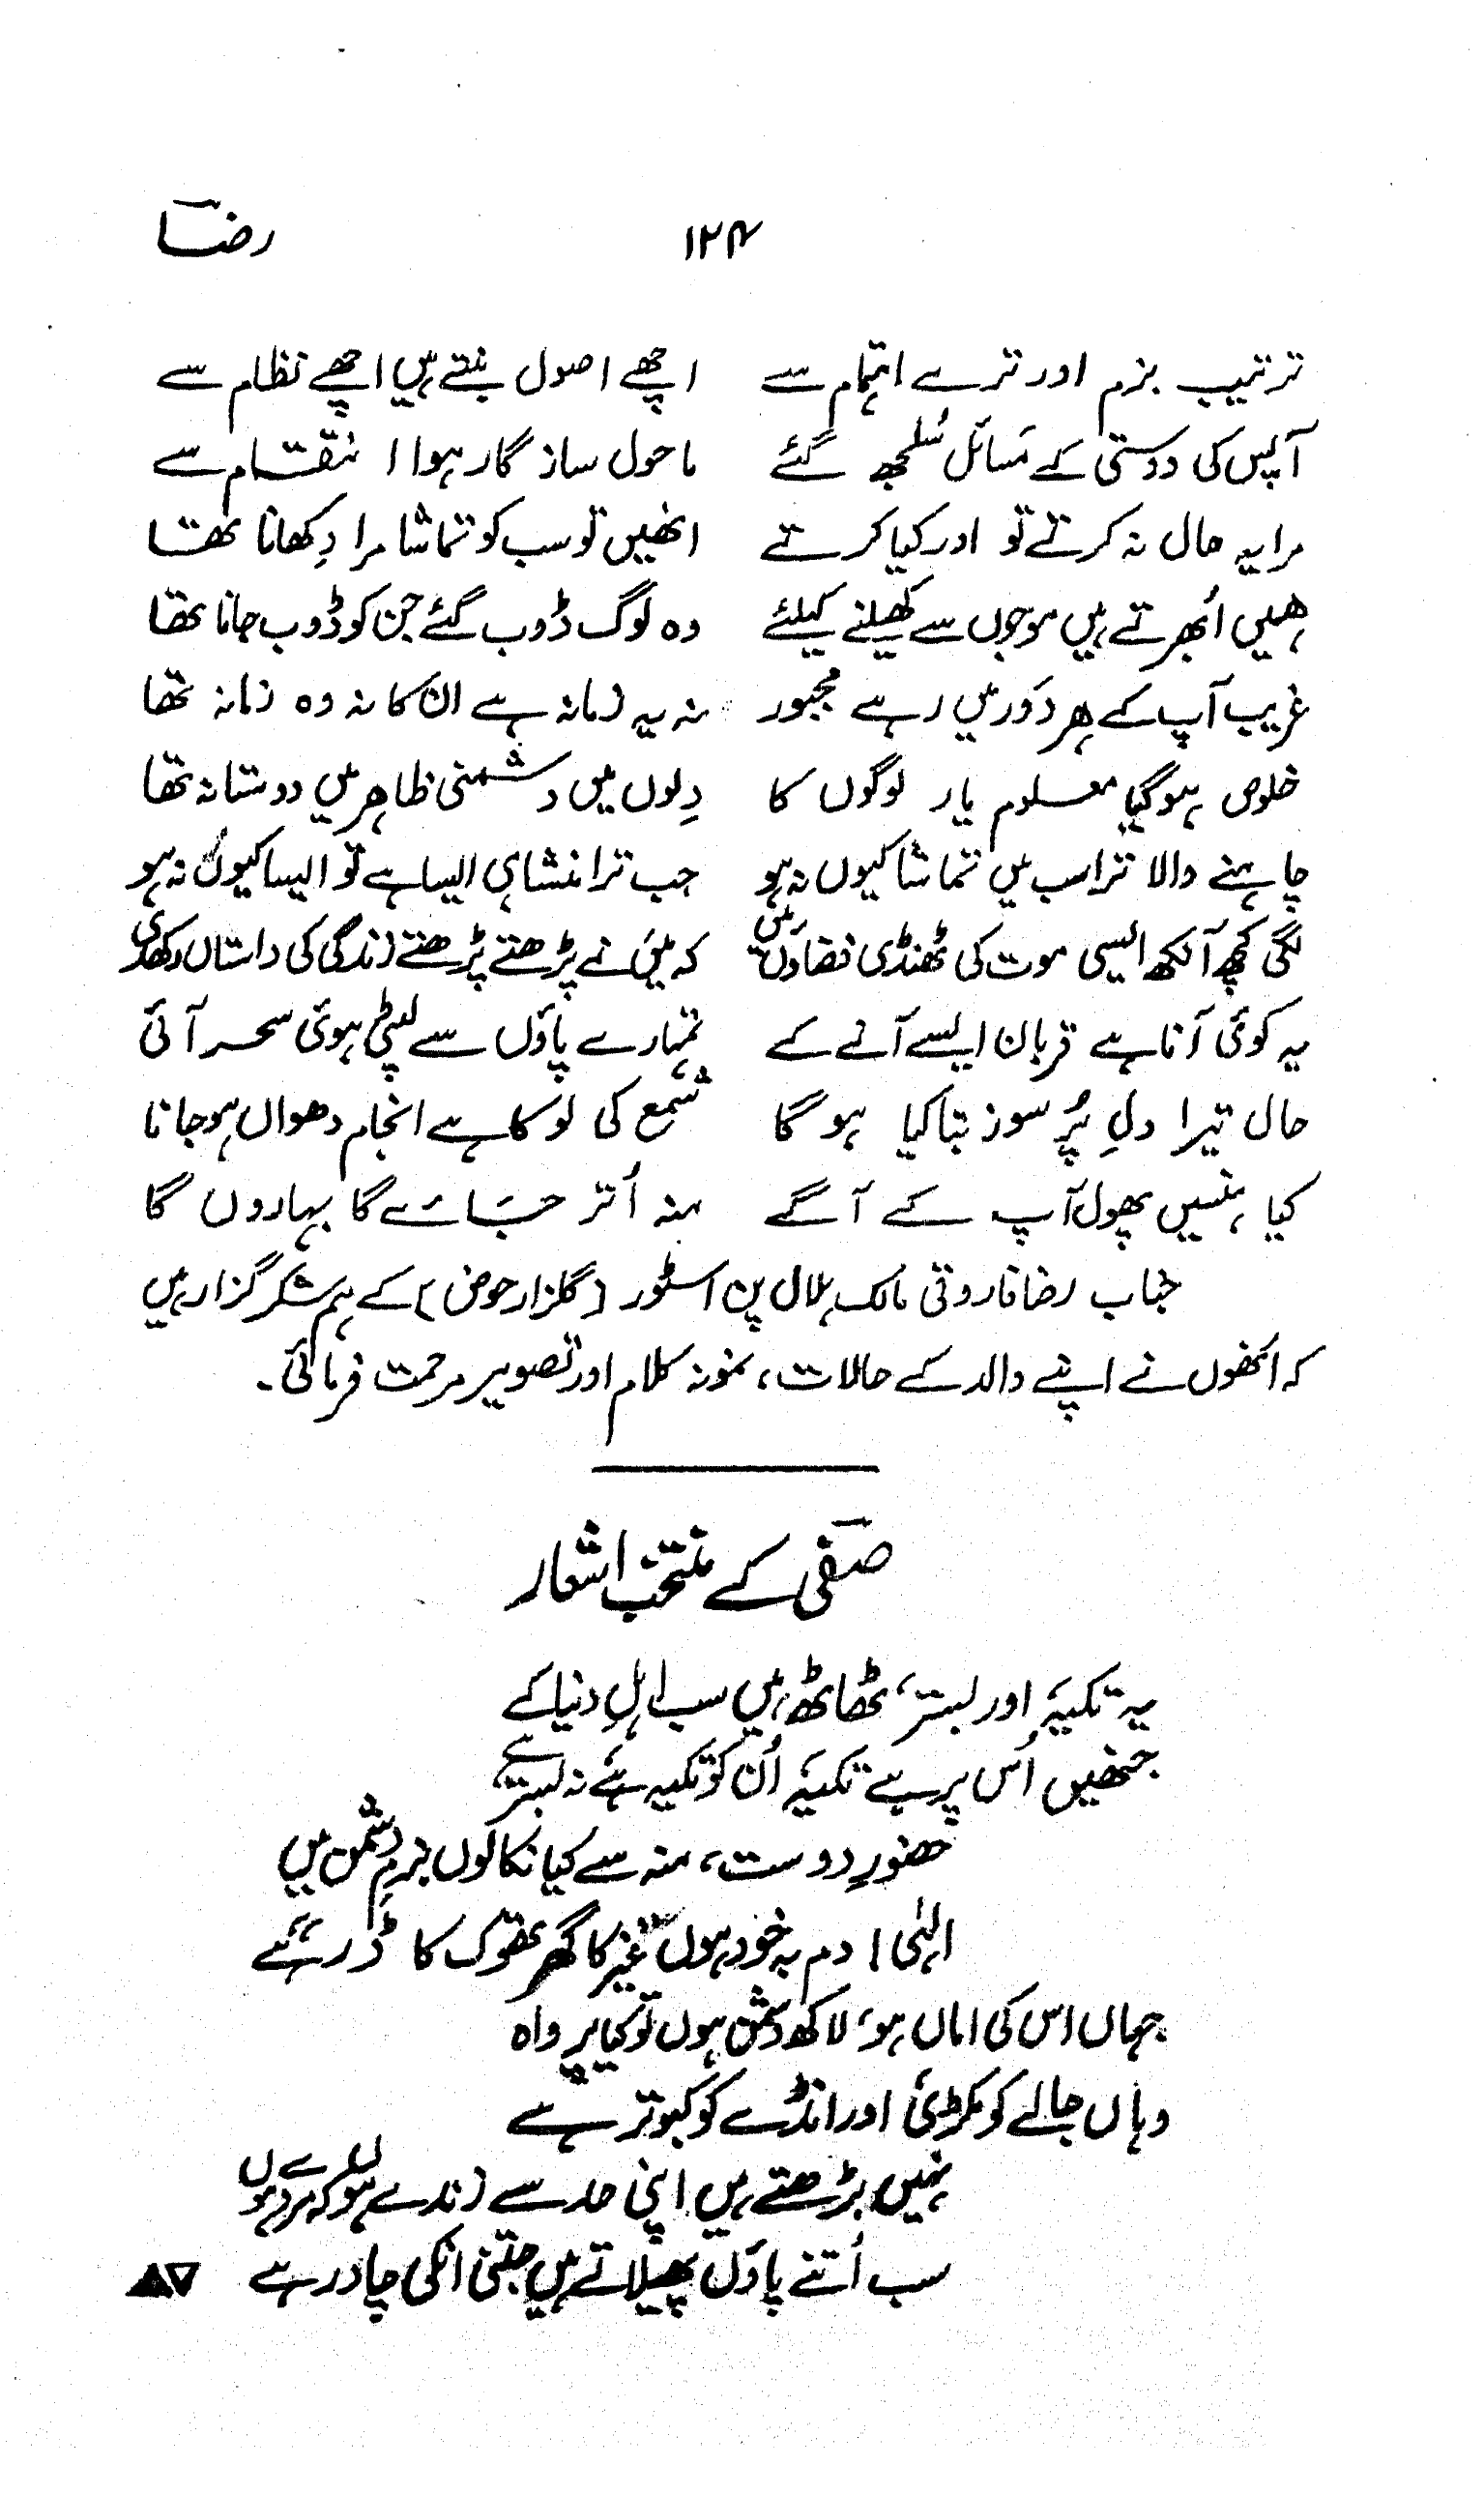 رضاؔ ۱۲۴
ترتیب بزم اور ترے اہتمام سے اچھے اصول بنتے ہیں اچھے نظام سے
آپس کی دوستی کے مسائل سُلجھ گئے ماحول سازگار ہوا انتقام سے
مرا یہ حال نہ کرتے تو اور کیا کرتے انھیں تو سب کو تماشا مرا دِکھانا تھا
ہمیں اُبھرتے ہیں موجوں سے کھیلنے کیلئے وہ لوگ ڈوب گئے جن کو ڈوب جانا تھا
غریب آپ کے ہر دَور میں رہے مجبور نہ یہ زمانہ ہے ان کا نہ وہ زمانہ تھا
خلوص ہو گیا معلوم یار لوگوں کا دِلوں میں دشمنی ظاہر میں دوستانہ تھا
چاہنے والا ترا سب میں تماشا کیوں نہ ہو جب ترا منشا ہی ایسا ہے تو ایسا کیوں نہ ہو
لگی کچھ آنکھ ایسی موت کی ٹھنڈی فضاؤں میں کہ میں نے پڑھتے پڑھتے زندگی کی داستاں رکھدی
یہ کوئی آنا ہے قربان ایسے آنے کے تمہارے پاؤں سے لپٹی ہوئی سحر آئی
حال تیرا دلِ پُرسوز بتا کیا ہوگا شمع کی لو کا ہے انجام دھواں ہو جانا
کیا ہنسیں پھول آپ کے آگے منہ اُتر جائے گا بہاروں گا
جناب رضا فاروقی مالک ہلال پن اسٹور (گلزار حوض) کے ہم شکر گزار ہیں
کہ انھوں نے اپنے والد کے حالات، نمونہ کلام اور تصویر مرحمت فرمائی۔
صفیؔ کے منتخب اشعار
یہ تکیہ اور بستر، ٹھاٹھ ہیں سب اہلِ دنیا کے
جنھیں اُس پر ہے تکیہ اُن کو تکیہ ہے نہ بستر ہے
حضورِ دوست، منہ سے کیا نکالوں بزمِ دشمن میں
الٰہی! دم بہ خود ہوں غیر کا گھر تھوک کا ڈر ہے
جہاں اس کی اماں ہو، لاکھ دشمن ہوں تو کیا پرواہ
وہاں جالے کو مکڑی اور انڈے کو کبوتر ہے
نہیں بڑھتے ہیں اپنی حد سے زندے ہوں کہ مردے ہوں
سب اُتنے پاؤں پھیلاتے ہیں جتنی انکی چادر ہے